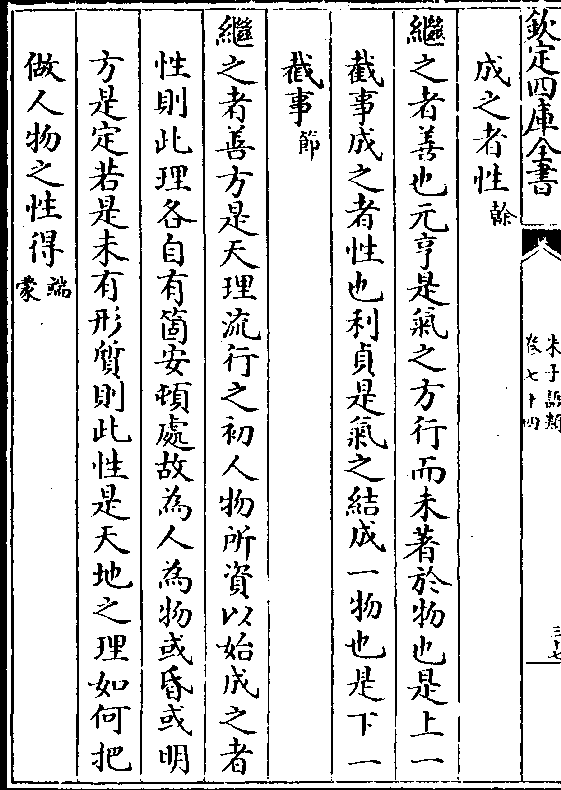 欽定四庫全書
朱子語類
卷七十四
三十七
成之者性榦
繼之者善也元亨是氣之方行而未著於物也是上一
截事成之者性也利貞是氣之結成一物也是下一
截事節
繼之者善方是天理流行之初人物所資以始成之者
性則此理各自有箇安頓處故為人為物或昏或明
方是定若是未有形質則此性是天地之理如何把
做人物之性得端蒙